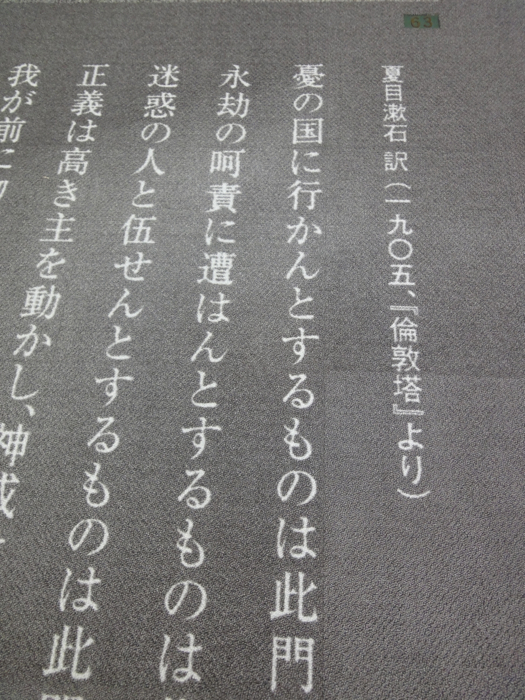 63
夏目漱石 訳（一九〇五、『倫敦塔』より）
憂の国に行かんとするものは此門
永劫の呵責に遭はんとするものは
迷惑の人と伍せんとするものは此
正義は高き主を動かし、神威
我が前に